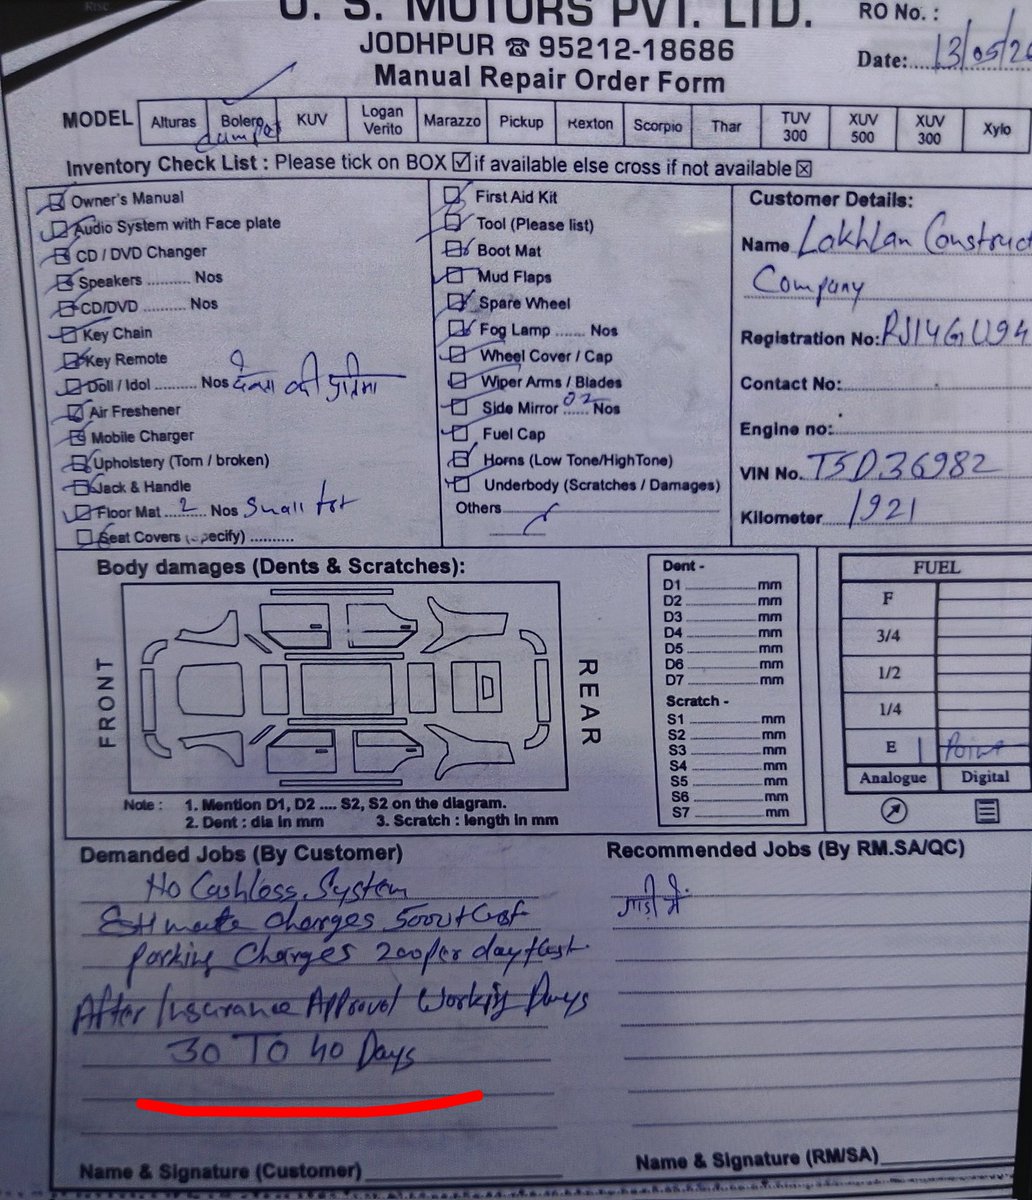 U. S. MOTORS PVT. LTD.
JODHPUR ☎ 95212-18686
Manual Repair Order Form
RO No. :
Date: 13/05/20
MODEL Alturas Bolero KUV Logan Verito Marazzo Pickup Rexton Scorpio Thar TUV 300 XUV 500 XUV 300 Xylo
Inventory Check List : Please tick on BOX ☑ if available else cross if not available ☒
Owner's Manual
Audio System with Face plate
CD / DVD Changer
Speakers .......... Nos
CD/DVD .......... Nos
Key Chain
Key Remote
Doll / Idol .......... Nos
Air Freshener
Mobile Charger
Upholstery (Torn / broken)
Jack & Handle
Floor Mat 2 Nos Small
Seat Covers (specify) ..........
First Aid Kit
Tool (Please list)
Boot Mat
Mud Flaps
Spare Wheel
Fog Lamp ....... Nos
Wheel Cover / Cap
Wiper Arms / Blades
Side Mirror 02 Nos
Fuel Cap
Horns (Low Tone/HighTone)
Underbody (Scratches / Damages)
Others
Customer Details:
Name Lakhlan Construct
Company
Registration No: RJ14GU94
Contact No:
Engine no:
VIN No. T5D36982
Kilometer 1921
Body damages (Dents & Scratches):
FRONT
REAR
Note : 1. Mention D1, D2 .... S2, S2 on the diagram.
2. Dent : dia in mm 3. Scratch : length in mm
Dent -
D1 mm
D2 mm
D3 mm
D4 mm
D5 mm
D6 mm
D7 mm
Scratch -
S1 mm
S2 mm
S3 mm
S4 mm
S5 mm
S6 mm
S7 mm
FUEL
F
3/4
1/2
1/4
E 1 Point
Analogue Digital
Demanded Jobs (By Customer)
No Cashless System
Estimate Charges 5000+Gst
Parking Charges 200 per day+Gst
After Insurance Approval Working Days
30 TO 40 Days
Name & Signature (Customer)
Recommended Jobs (By RM.SA/QC)
Name & Signature (RM/SA)